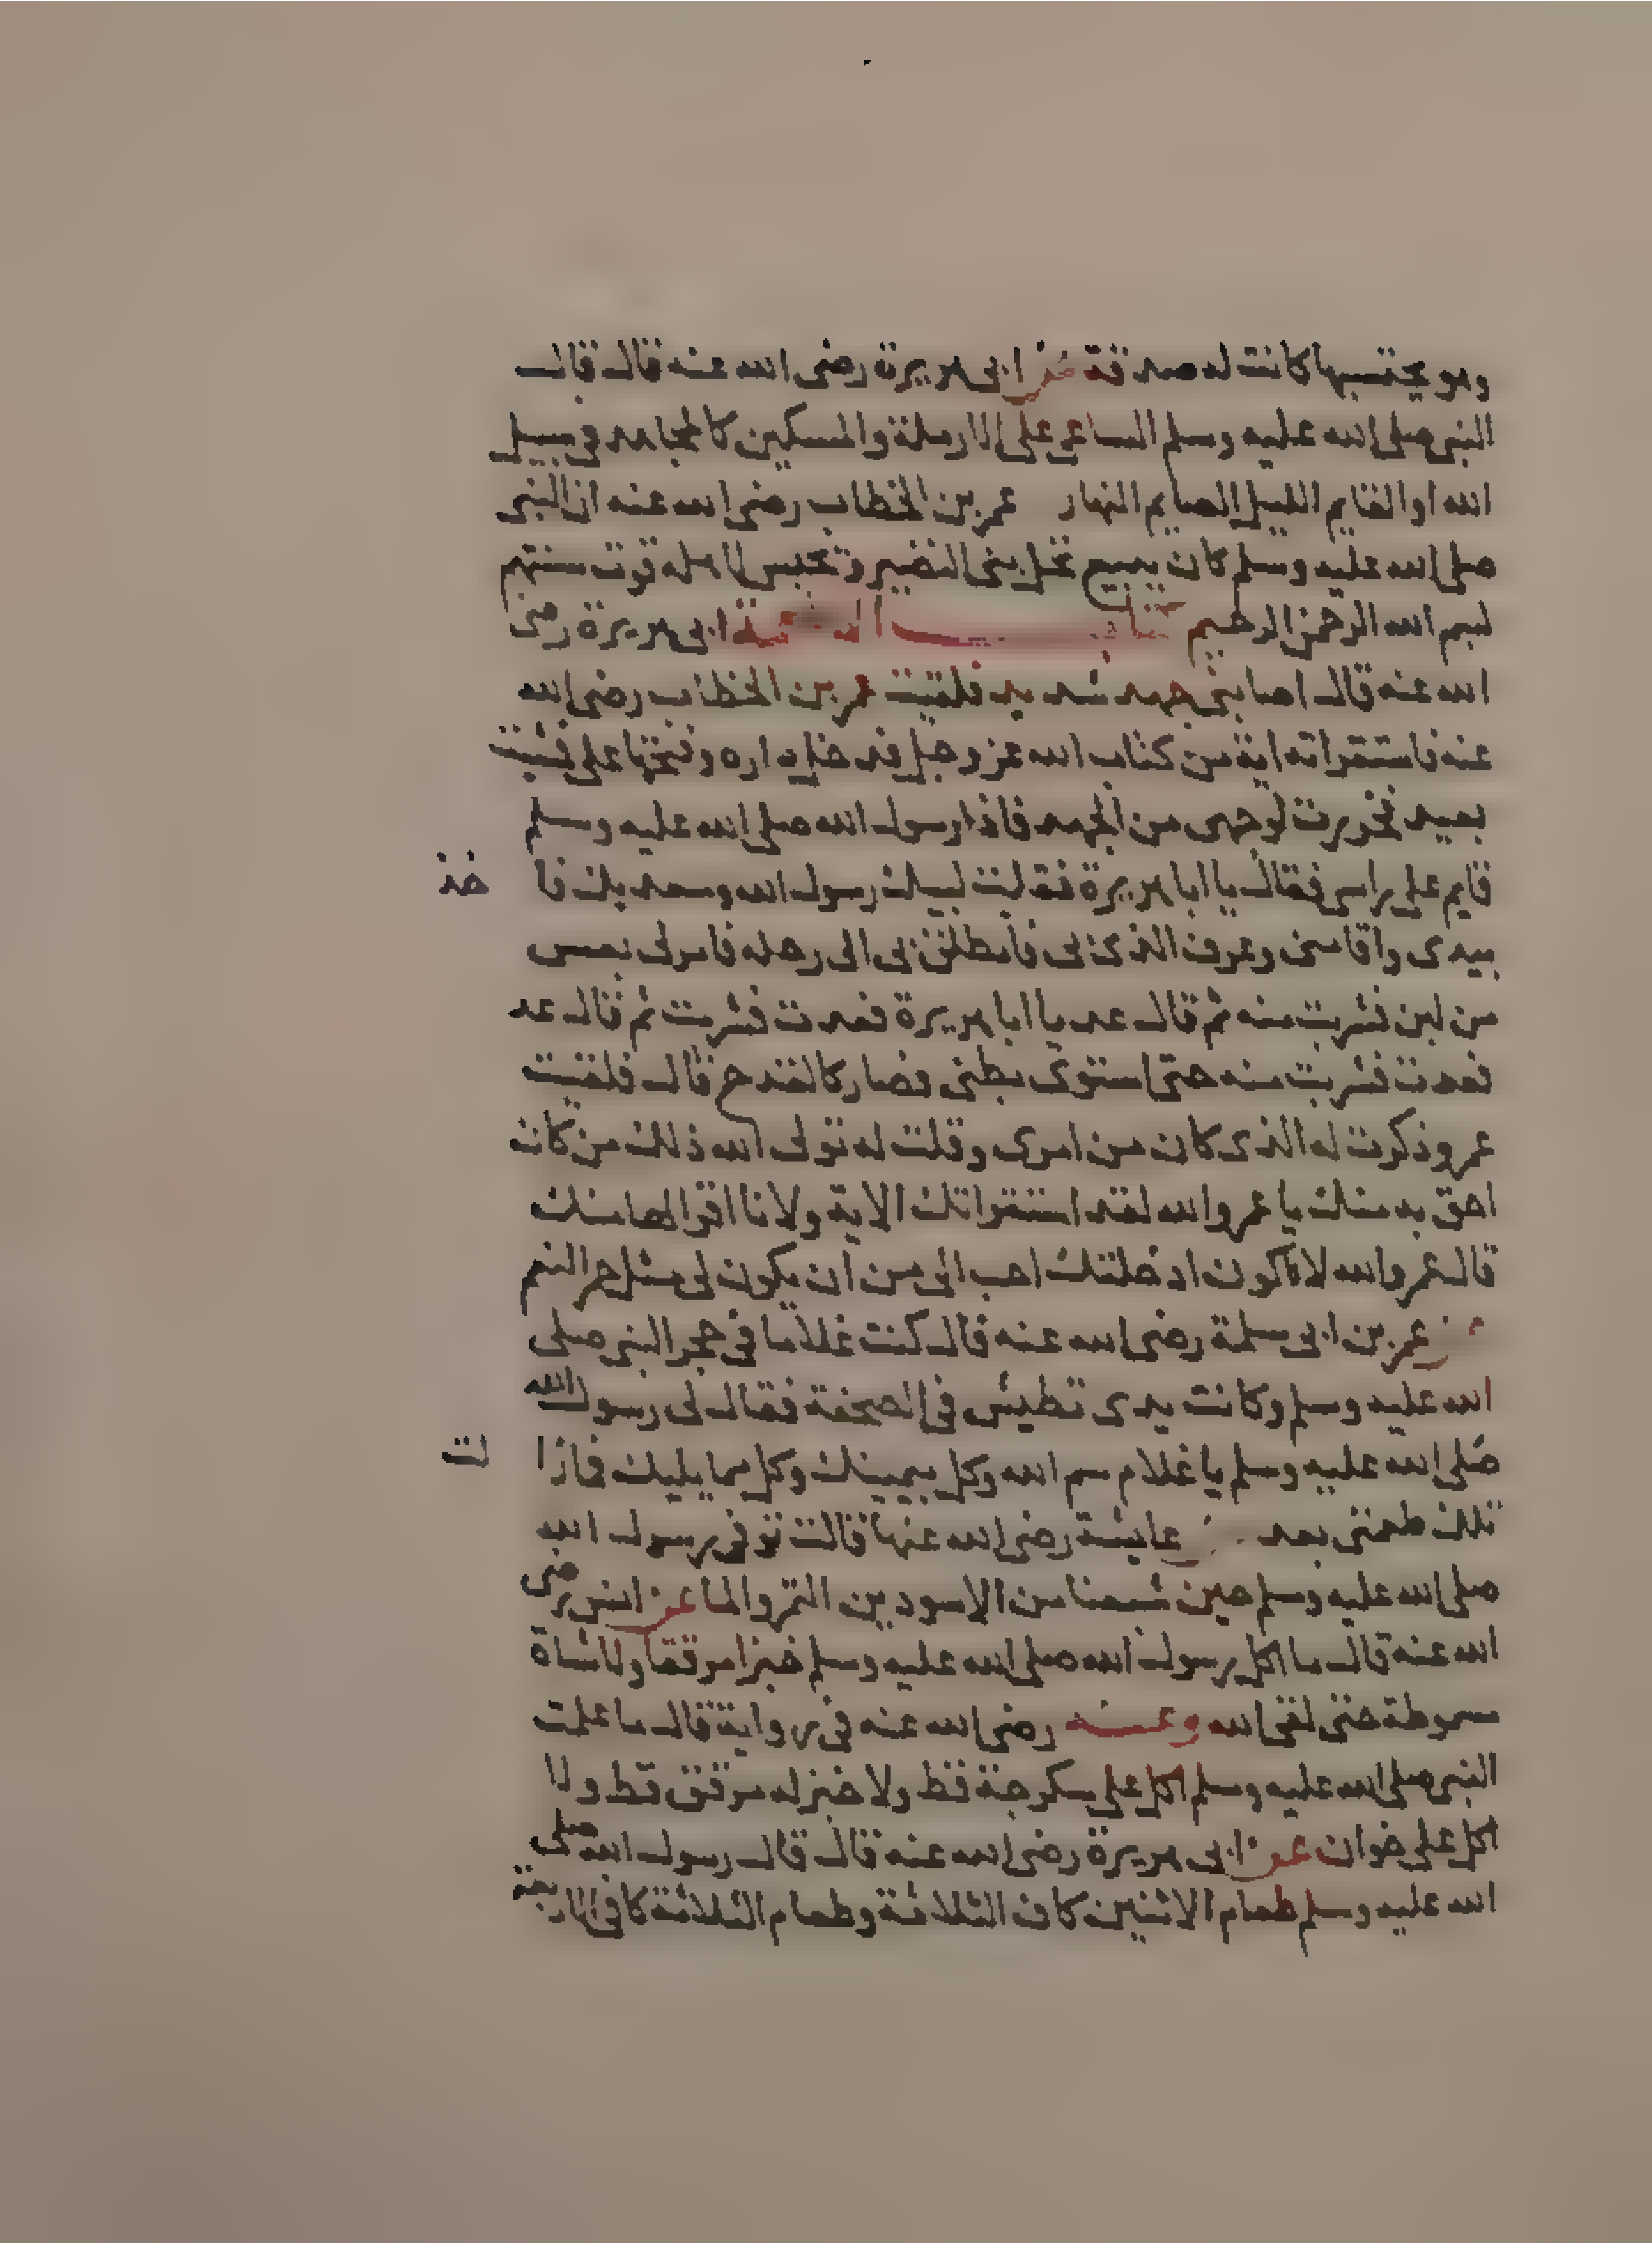 وهو يحتسبها كانت له صدقة عن ابى هريرة رضى الله عنه قال قال
النبى صلى الله عليه وسلم الساعى على الارملة والمسكين كالمجاهد فى سبيل
الله او القايم الليل الصايم النهار عمر بن الخطاب رضى الله عنه ان النبى
صلى الله عليه وسلم كان يبيع نخل بنى النضير وتحبس لاهله قوت سنتهم
بسم الله الرحمن الرحيم كتاب الاطعمة ابى هريرة رضى
الله عنه قال اصابنى جهد شديد فلقيت عمر بن الخطاب رضى الله
عنه فاستقراته اية من كتاب الله عز وجل فدخل داره وفتحها على فمشيت
بعيد فخررت لوجهى من الجهد فاذا رسول الله صلى الله عليه وسلم
قايم على راسى فقال يا ابا هريرة فقلت لبيك رسول الله وسعديك فا خذ
بيدى واقامنى وعرف الذى بى فانطلق بى الى رحله فامر لى بعس
من لبن فشربت منه ثم قال عد يا ابا هريرة فعدت فشربت ثم قال عد
فعدت فشربت منه حتى استوى بطنى فصار كالقدح قال فلقيت
عمر وذكرت له الذى كان من امرى وقلت له تولى الله ذلك من كان
احق به منك يا عمر والله لقد استقراتك الاية ولانا اقرا لها منك
قال عمر والله لان اكون ادخلتك احب الى من ان يكون لى مثل حمر النعم
عن عمر بن ابى سلمة رضى الله عنه قال كنت غلاما فى حجر النبى صلى
الله عليه وسلم وكانت يدى تطيش فى الصحفة فقال لى رسول الله
صلى الله عليه وسلم يا غلام سم الله وكل بيمينك وكل مما يليك فما زا لت
تلك طعمتى بعد عن عايشة رضى الله عنها قالت توفى رسول الله
صلى الله عليه وسلم حين شبعنا من الاسودين التمر والما عن انس رضى
الله عنه قال ما اكل رسول الله صلى الله عليه وسلم خبزا مرققا ولا شاة
مسموطة حتى لقى الله وعنه رضى الله عنه فى رواية قال ما علمت
النبى صلى الله عليه وسلم اكل على سكرجة قط ولا خبز له مرقق قط ولا
اكل على خوان عن ابى هريرة رضى الله عنه قال قال رسول الله صلى
الله عليه وسلم طعام الاثنين كاف الثلاثة وطعام الثلاثة كافى الاربعة